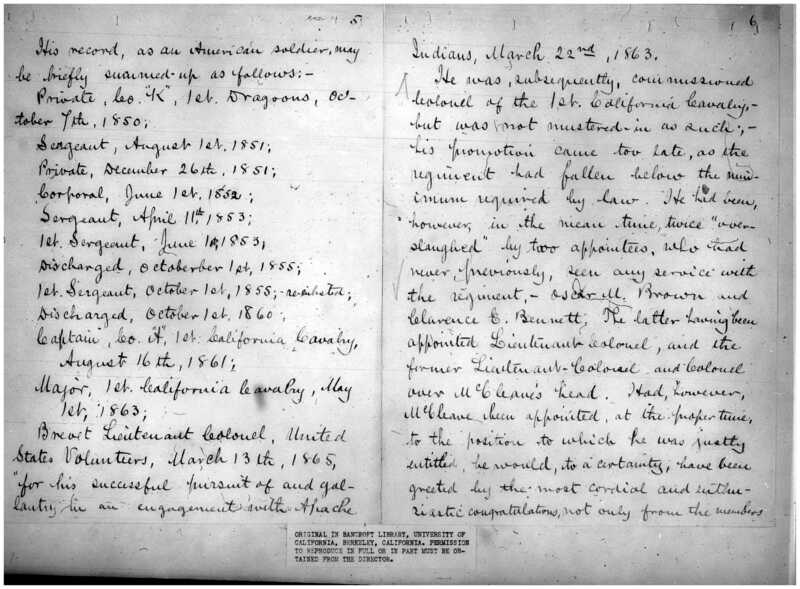 5
His record, as an American soldier, may
be briefly summed-up as follows:-
Private, Co. "K", 1st. Dragoons, Oc-
tober 7th, 1850;
Sergeant, August 1st, 1851;
Private, December 26th, 1851;
Corporal, June 1st, 1852;
Sergeant, April 11th, 1853;
1st. Sergeant, June 10, 1853;
Discharged, Octoberber 1st, 1855;
1st. Sergeant, October 1st, 1855; - re-enlisted;
Discharged, October 1st. 1860;
Captain, Co. "A", 1st. California Cavalry,
August 16th, 1861;
Major, 1st. California Cavalry, May
1st, 1863;
Brevet Lieutenant Colonel, United
States Volunteers, March 13th, 1865,
"for his successful pursuit of and gal-
lantry in an engagement with Apache
6
Indians, March 22nd, 1863.
He was, subsequently, commissioned
Colonel of the 1st. California Cavalry,-
but was not mustered-in as such;-
his promotion came too late, as the
regiment had fallen below the min-
imum required by law. He had been,
however, in the mean time, twice "over-
slaughed" by two appointees, who had
never, previously, seen any service with
the regiment,- Oscar M. Brown and
Clarence E. Bennett; The latter having been
appointed Lieutenant-Colonel, and the
former Lieutenant-Colonel and Colonel
over McCleave's head. Had, however,
McCleave been appointed, at the proper time,
to the position to which he was justly
entitled, he would, to a certainty, have been
greeted by the most cordial and enthu-
siastic congratulations, not only from the members
ORIGINAL IN BANCROFT LIBRARY, UNIVERSITY OF
CALIFORNIA, BERKELEY, CALIFORNIA. PERMISSION
TO REPRODUCE IN FULL OR IN PART MUST BE OB-
TAINED FROM THE DIRECTOR.